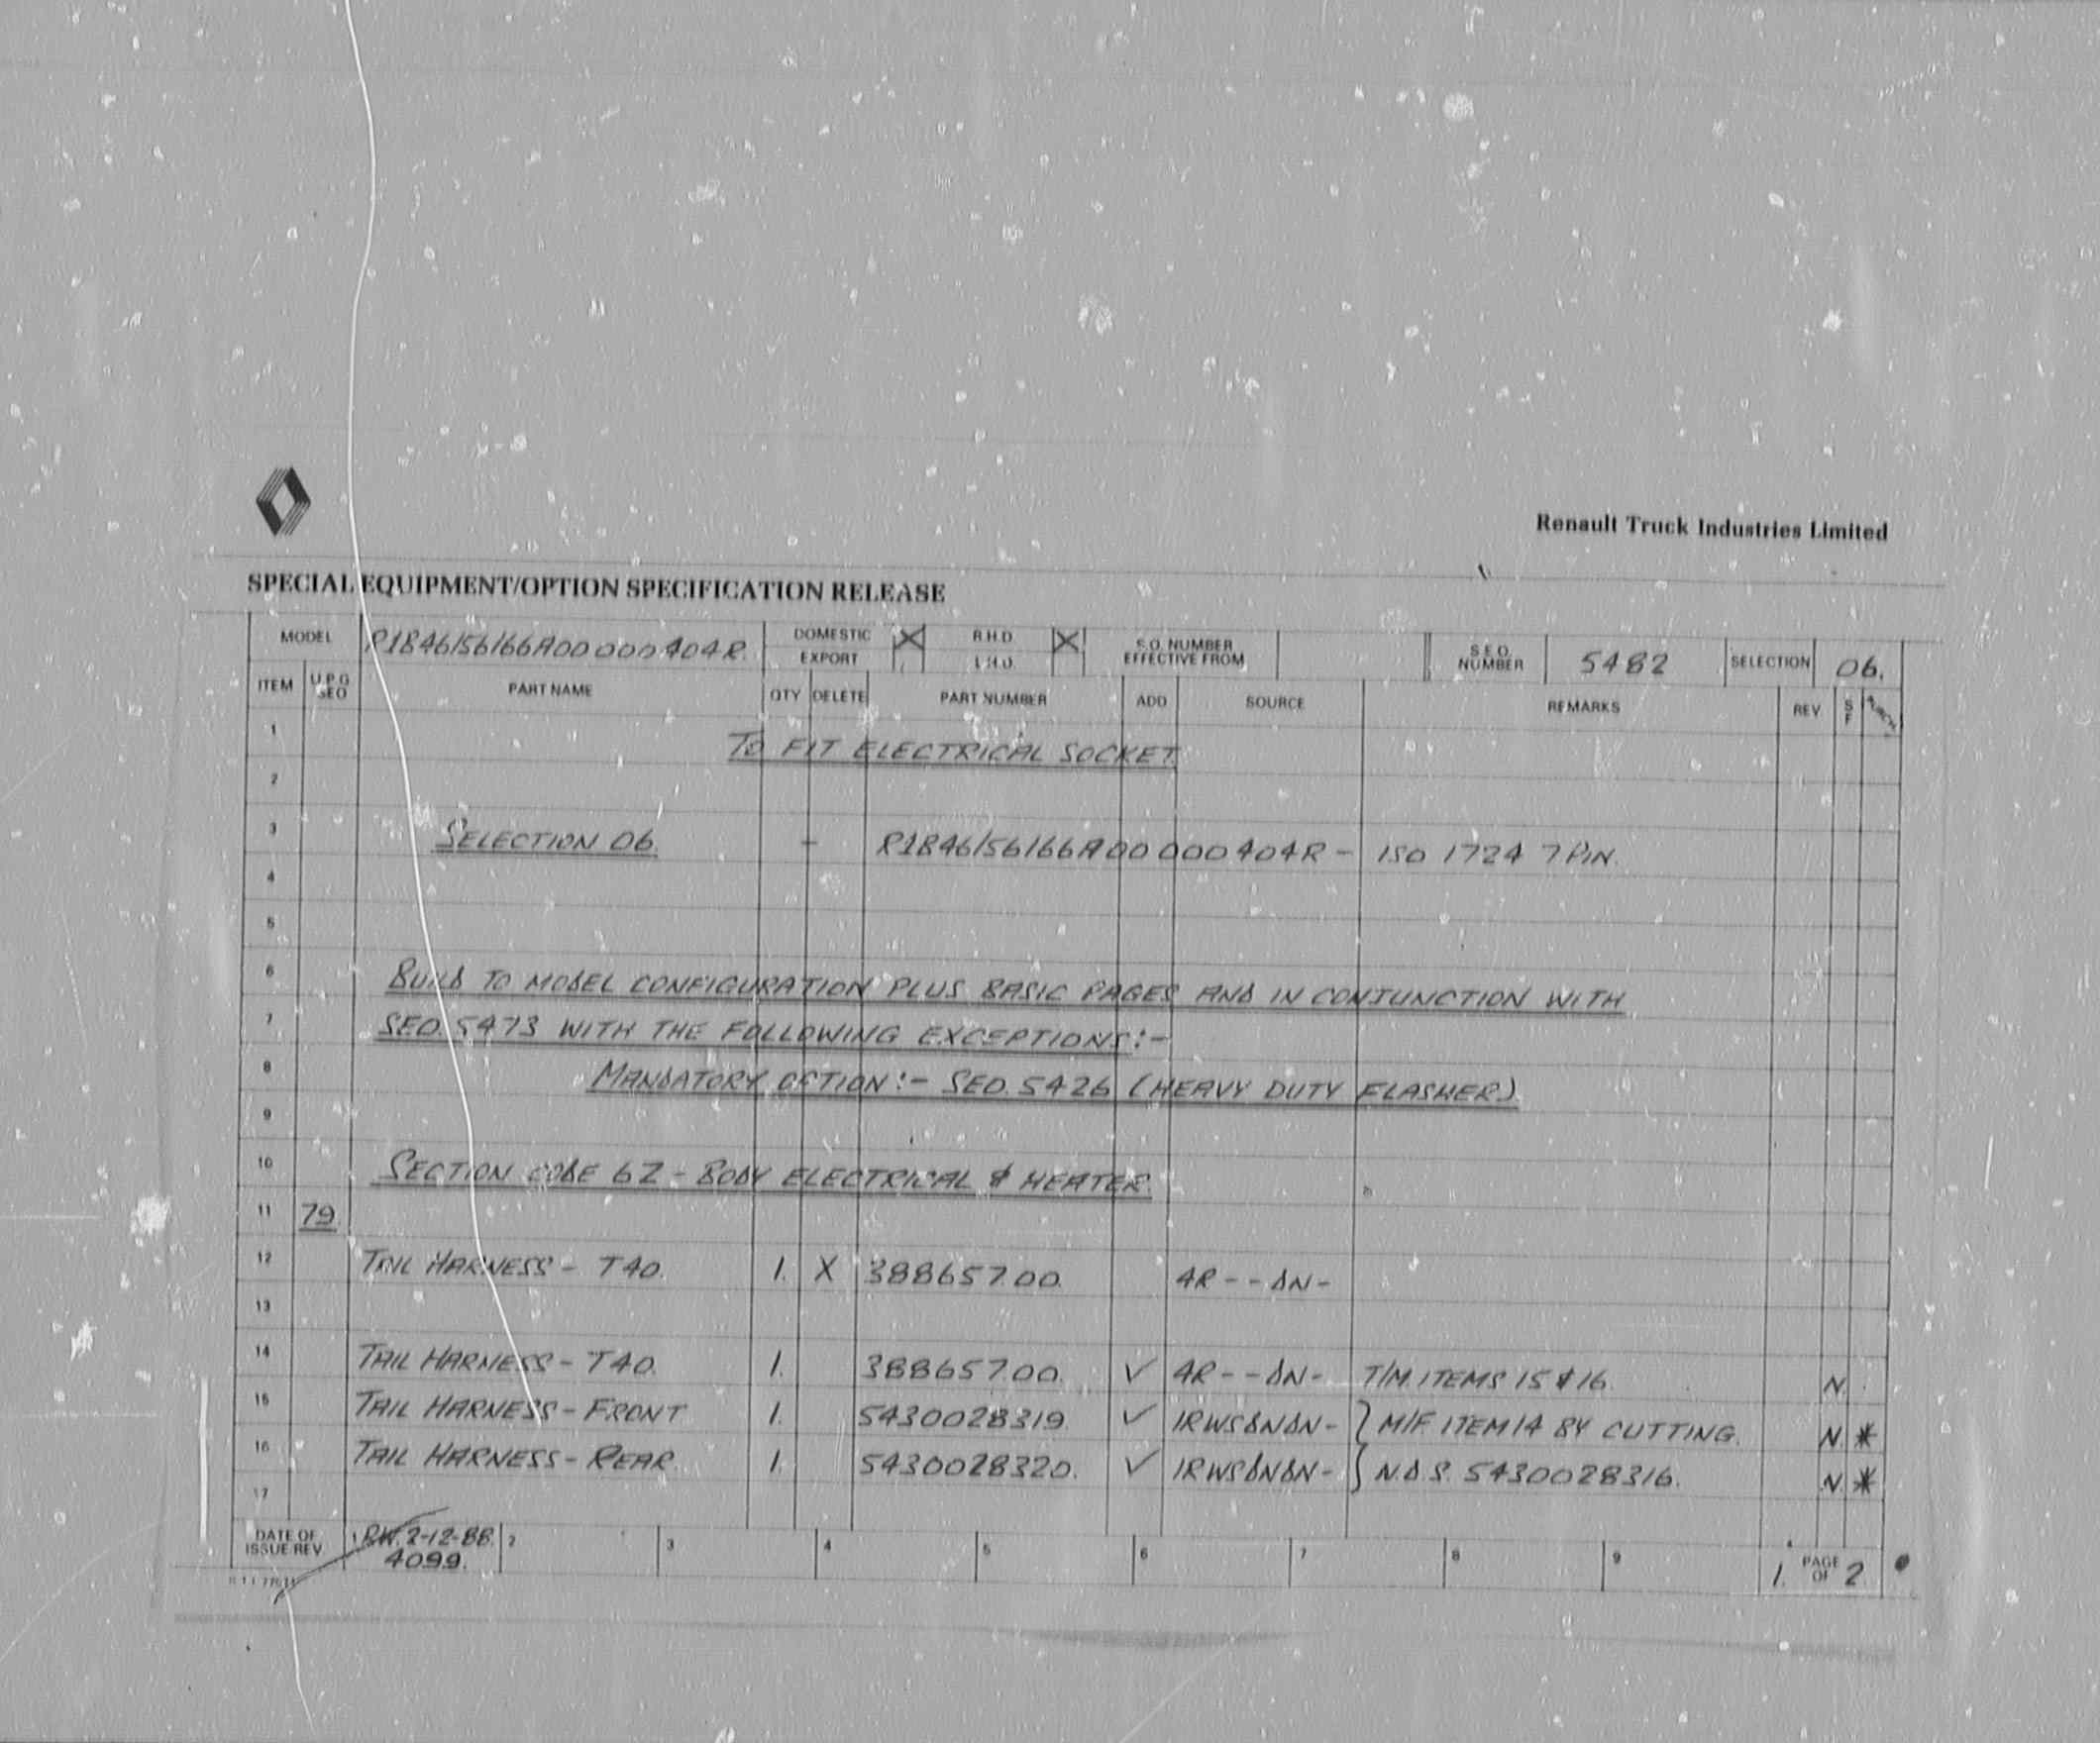 Renault Truck Industries Limited
SPECIAL EQUIPMENT/OPTION SPECIFICATION RELEASE
MODEL P1846/56/66A00 000404R. DOMESTIC X R.H.D. X S.O. NUMBER S.E.O. 5482 SELECTION 06.
EXPORT L.H.D. EFFECTIVE FROM NUMBER
ITEM U.P.G SEO PART NAME QTY DELETE PART NUMBER ADD SOURCE REMARKS REV S F
1 TO FIT ELECTRICAL SOCKET.
2
3 SELECTION 06. - P1846/56/66A00 000404R - ISO 1724 7 PIN.
4
5
6 BUILD TO MODEL CONFIGURATION PLUS BASIC PAGES AND IN CONJUNCTION WITH
7 SEO. 5473 WITH THE FOLLOWING EXCEPTIONS:-
8 MANDATORY OPTION:- SEO. 5426 (HEAVY DUTY FLASHER).
9
10 SECTION CODE 6Z - BODY ELECTRICAL & HEATER.
11 79
12 TAIL HARNESS - T40. 1. X 38865700. 4R--DN-
13
14 TAIL HARNESS - T40. 1. 38865700. ✓ 4R--DN- T/M. ITEMS 15 & 16. N
15 TAIL HARNESS - FRONT 1. 5430028319. ✓ 1RWSDNDN- } M/F ITEM 14 BY CUTTING. N *
16 TAIL HARNESS - REAR. 1. 5430028320. ✓ 1RWSDNDN- } N.D.S. 5430028316. N *
17
DATE OF ISSUE/REV 1 RW. 2-12-88. 2 3 4 5 6 7 8 9 1. PAGE OF 2
4099.